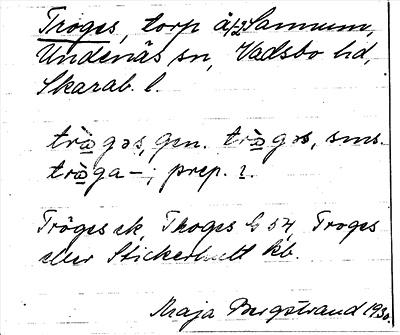 Tröges, torp å Sannum,
Undenäs sn, Vadsbo hd,
Skarab. l.
trö̀gəs, gen. trö̀gəs, sms.
trö̀ga-; prep. i.
Tröges ek, Thoges G 54, Troges
eller Stickerhult kb.
Maja Bergstrand 1930.